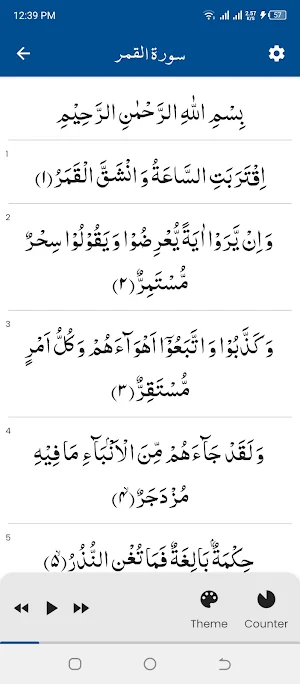 12:39 PM
2.57 KB/s 57
سورة القمر
بِسْمِ اللّٰهِ الرَّحْمٰنِ الرَّحِيْمِ
1
اِقْتَرَبَتِ السَّاعَةُ وَانْشَقَّ الْقَمَرُ ﴿۱﴾
2
وَاِنْ يَّرَوْا اٰيَةً يُّعْرِضُوْا وَيَقُوْلُوْا سِحْرٌ
مُّسْتَمِرٌّ ﴿۲﴾
3
وَكَذَّبُوْا وَاتَّبَعُوْٓا اَهْوَآءَهُمْ وَكُلُّ اَمْرٍ
مُّسْتَقِرٌّ ﴿۳﴾
4
وَلَقَدْ جَآءَهُمْ مِّنَ الْاَنْۢبَآءِ مَا فِيْهِ
مُزْدَجَرٌ ﴿۴﴾ۙ
5
حِكْمَةٌۢ بَالِغَةٌ فَمَا تُغْنِ النُّذُرُ ﴿۵﴾ۙ
Theme Counter